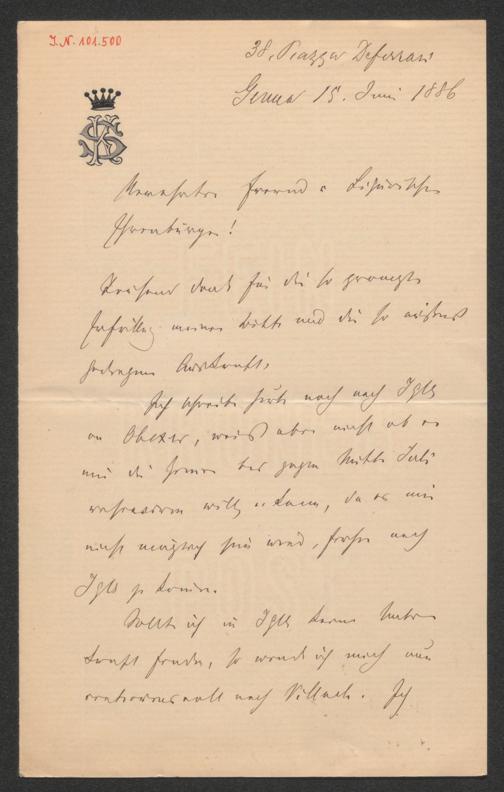 J.N. 101.500
38, Piazza Deferrari
Genua 15. Juni 1886
KS
Verehrter Freund u. Ligurischer
Ehrenbürger!
Tausend Dank für die so prompte
Erfüllung meiner Bitte und die so
gediegene Auskunft.
Ich schreibe heute noch nach Igls
an Obexer, weiß aber nicht ob er
mir die Zimmer bis gegen Mitte Juli
reservieren will u. kann, da es mir
nicht möglich sein wird, früher nach
Igls zu kommen.
Sollte ich in Igls keine Unter
kunft finden, so wende ich mich nun
vertrauensvoll nach Villach. Ich